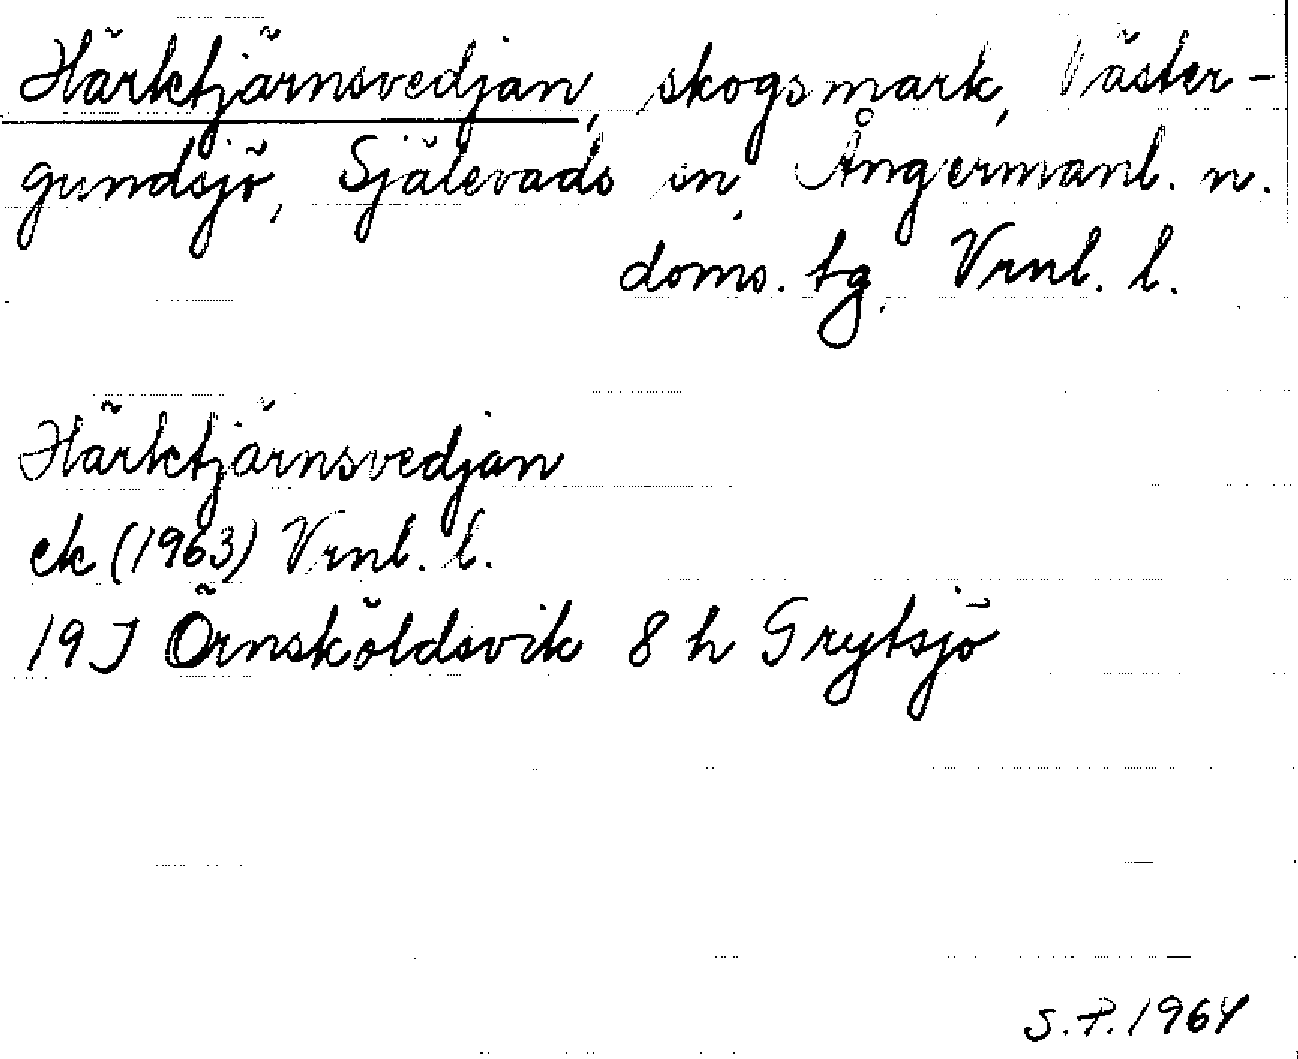 Härktjärnsvedjan, skogsmark, Väster-
gundsjö, Själevads sn, Ångermanl. n.
doms. tg, Vrnl. l.
Härktjärnsvedjan
ek (1963) Vrnl. l.
19 J Örnsköldsvik 8 h Grytsjö
S.P. 1964